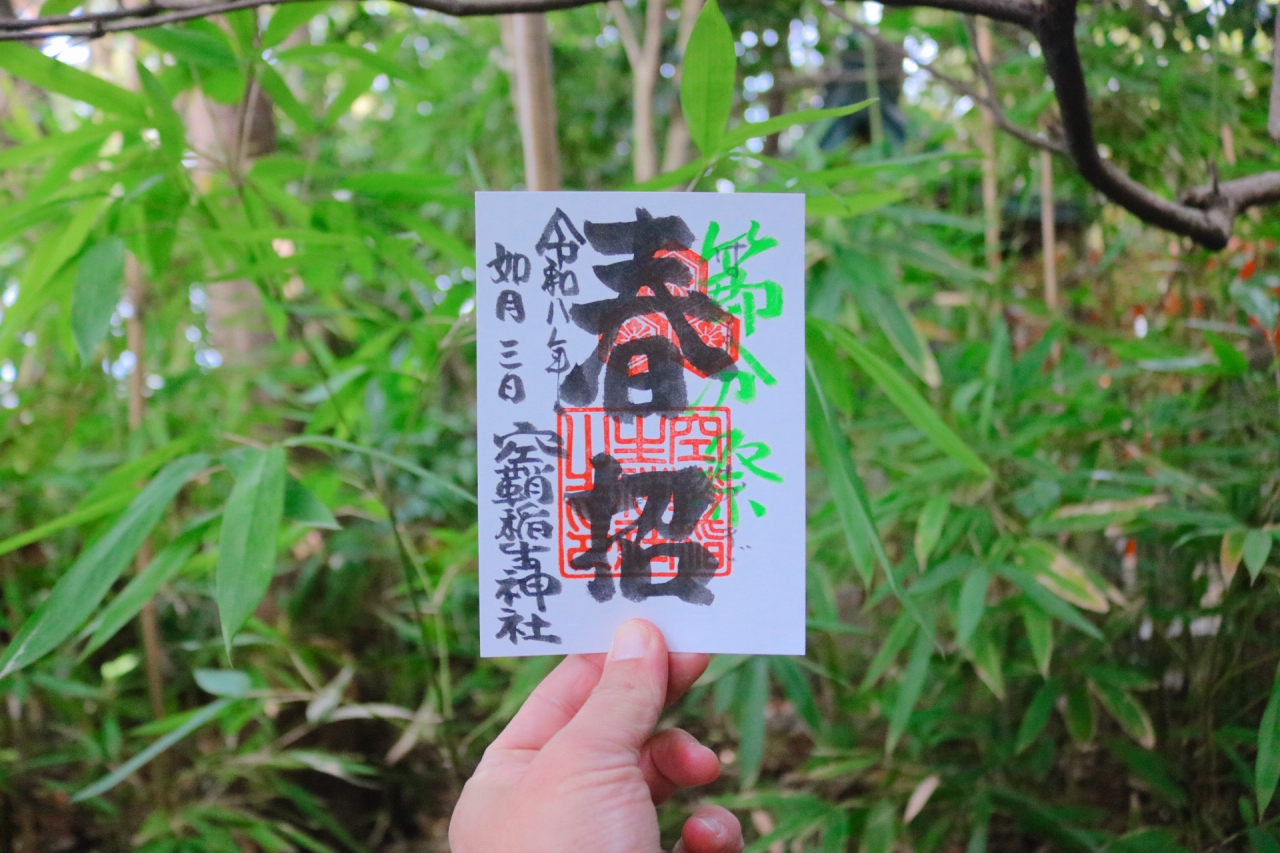 節分祭
春招
令和八年
如月三日
空鞘稲生神社